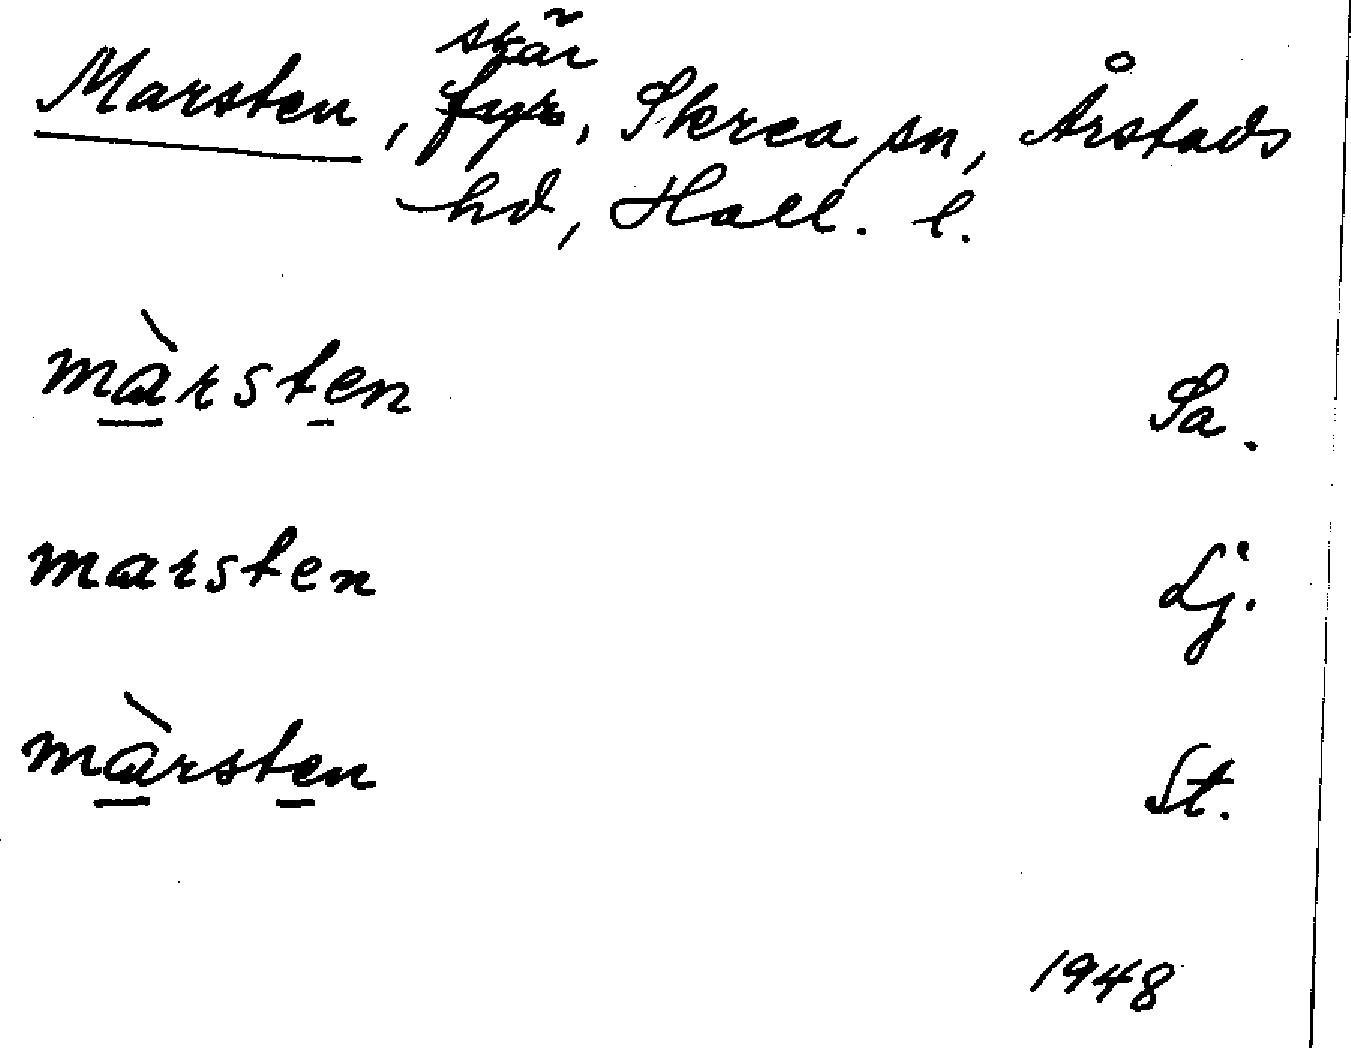 skär
Marsten, fyr, Skrea sn, Årstads
hd, Hall. l.
màrsten Sa.
marsten Lj.
màrsten St.
1948